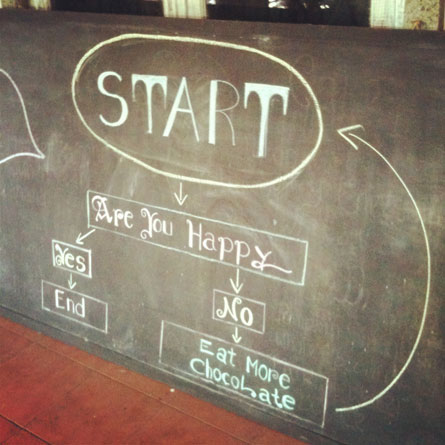 START
Are You Happy
Yes
No
End
Eat More
Chocolate